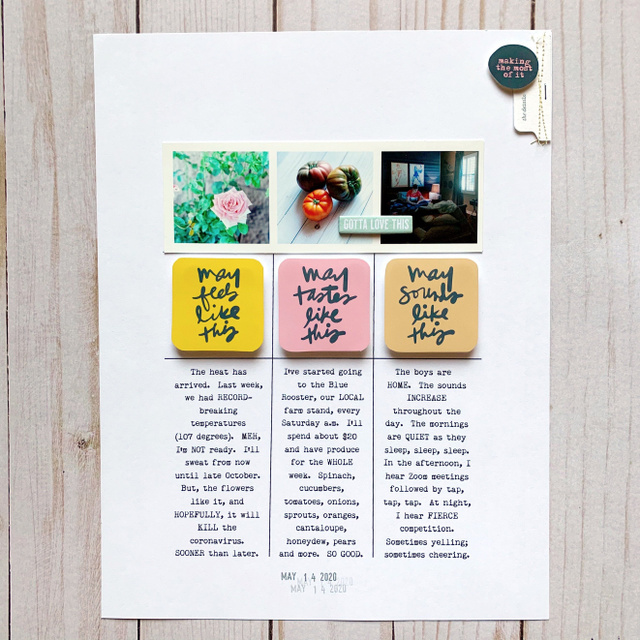 making
the most
of it
GOTTA LOVE THIS
may
feels
like
this
may
tastes
like
this
may
sounds
like
this
The heat has
arrived. Last week,
we had RECORD-
breaking
temperatures
(107 degrees). MEH,
I'm NOT ready. I'll
sweat from now
until late October.
But, the flowers
like it, and
HOPEFULLY, it will
KILL the
coronavirus.
SOONER than later.
I've started going
to the Blue
Rooster, our LOCAL
farm stand, every
Saturday a.m. I'll
spend about $20
and have produce
for the WHOLE
week. Spinach,
cucumbers,
tomatoes, onions,
sprouts, oranges,
cantaloupe,
honeydew, pears
and more. SO GOOD.
The boys are
HOME. The sounds
INCREASE
throughout the
day. The mornings
are QUIET as they
sleep, sleep, sleep.
In the afternoon, I
hear Zoom meetings
followed by tap,
tap, tap. At night,
I hear FIERCE
competition.
Sometimes yelling;
sometimes cheering.
MAY 14 2020
MAY 14 2020